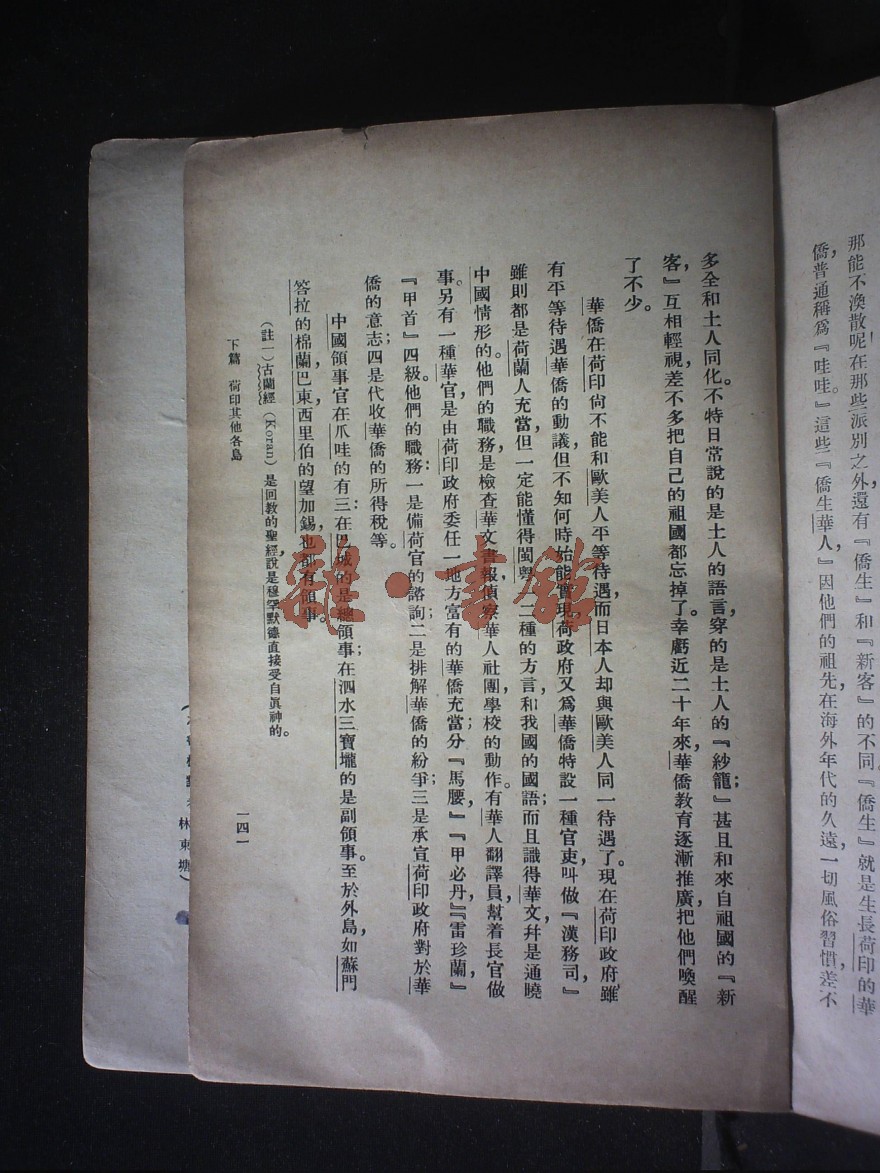 那能不渙散呢在那些派別之外，還有『僑生』和『新客』的不同。『僑生』就是生長荷印的華
僑，普通稱爲『哇哇。』這些『僑生華人，』因他們的祖先在海外年代的久遠，一切風俗習慣，差不
多全和土人同化。不特日常說的是土人的語言，穿的是土人的『紗籠』；甚且和來自祖國的『新
客，』互相輕視，差不多把自己的祖國都忘掉了。幸虧近二十年來，華僑教育逐漸推廣，把他們喚醒
了不少。
華僑在荷印尙不能和歐美人平等待遇，而日本人却與歐美人同一待遇了。現在荷印政府，雖
有平等待遇華僑的動議，但不知何時始能實現。荷政府又爲華僑特設一種官吏，叫做『漢務司，』
雖則都是荷蘭人充當，但一定能懂得閩粵一二種的方言，和我國的國語；而且識得華文，幷是通曉
中國情形的。他們的職務，是檢查華文書報，偵察華人社團學校的動作。有華人翻譯員，幫着長官做
事。另有一種華官，是由荷印政府委任一地方富有的華僑充當；分『馬腰，』『甲必丹，』『雷珍蘭，』
『甲首』四級。他們的職務：一是備荷官的諮詢；二是排解華僑的紛爭；三是承宣荷印政府對於華
僑的意志；四是代收華僑的所得稅等。
中國領事官在爪哇的有三：在巴城的是總領事；在泗水三寶壠的是副領事。至於外島，如蘇門
答拉的棉蘭，巴東，西里伯的望加錫，也都有領事。
（註一）古蘭經（Koran）是回教的聖經，說是穆罕默德直接受自眞神的。
下篇　荷印其他各島
一四一
林東塘）
龍·書館